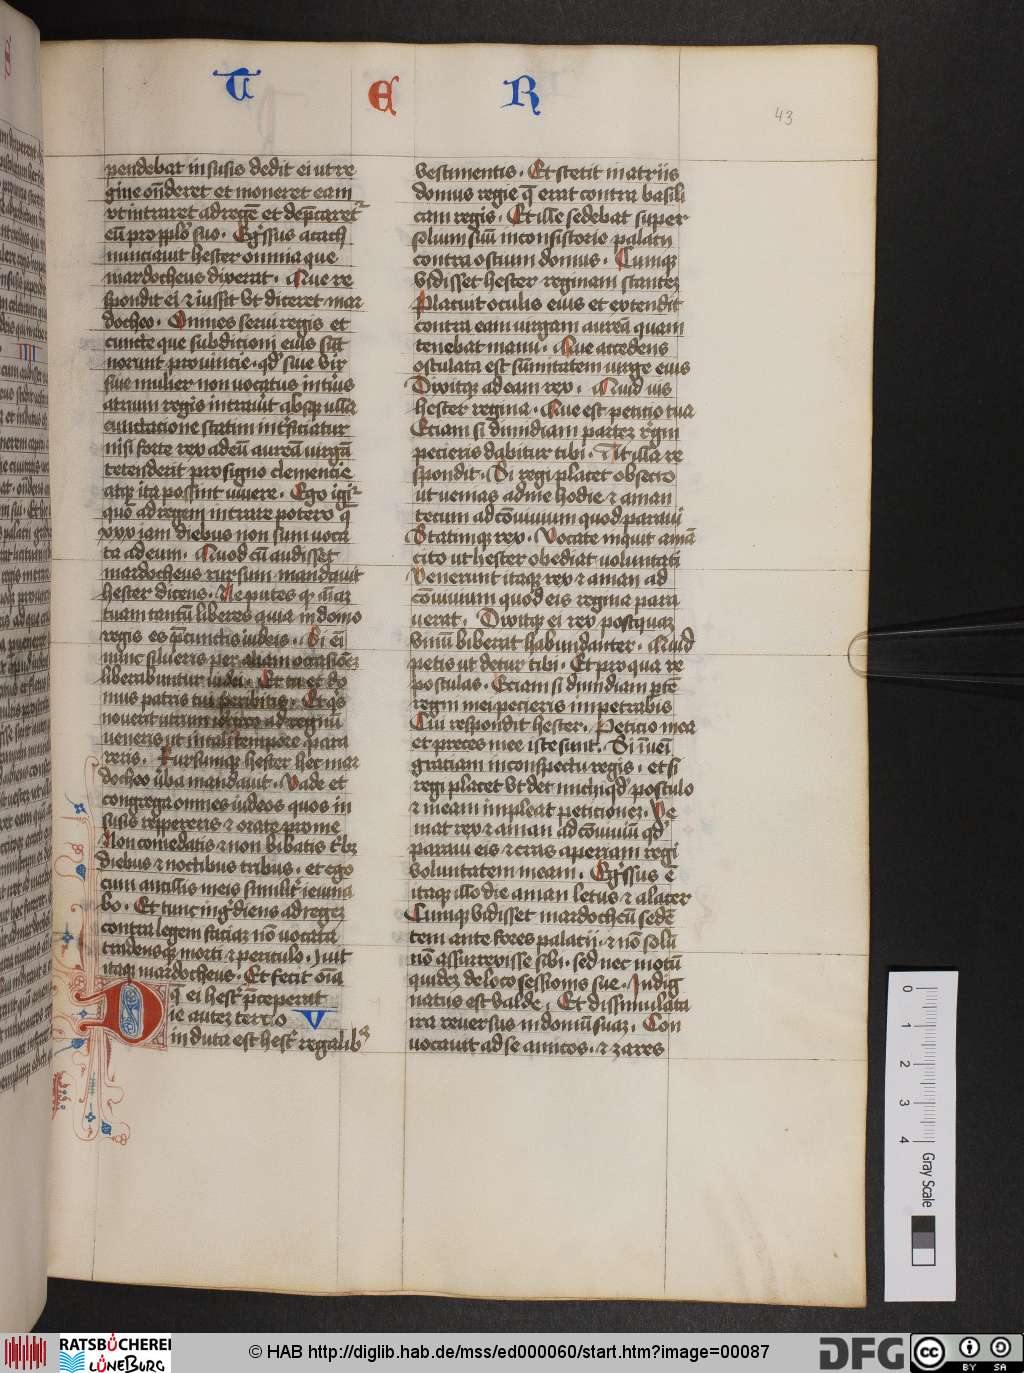 T E R
43
pendebat in susis dedit ei ut re
gine on̄deret et moneret eam
vt intraret ad regē et dep̄caretᷣ
eū pro pp̄lo suo. Egr̄ssus atach
nunciauit hester omnia que
mardocheus dixerat. Que re
spondit ei ⁊ iussit vt diceret mar
docheo. Omnes serui regis et
cuncte que sub dicioni eius sūt
norunt prouincie. qd̓ siue vir
siue mulier non vocatus int̓ius
atrium regis intrau̓it absqꝫ ulla
cunctacione statim int̓ficiatur
nisi forte rex ad eū aureā virgā
tetenderit pro signo clemencie
atqꝫ ita possint viuere. Ego igiᷣ
quō ad regem intrare potero q̄
xxx iam diebus non sum voca
ta ad eum. Quod cū audisset
mardocheus rursum mandauit
hester dicens. Ne putes qꝫ aīaꝫ
tuam tantū liberes quia in domo
regis es p̄ cunctis iudeis. Si eī
nunc silueris per aliam occasiōeꝫ
liberabuntur iudei. Et tu et do
mus patris tui peribitis. Et q̓s
nouerit utrum iccirco ad regnū
veneris ut in tali tempore para
reris. Rursumqꝫ hester hec mar
docheo v̓ba mandauit. Vade et
congrega omnes iudeos quos in
susis reppereris ⁊ orate pro me
Non comedatis ⁊ non bibatis t̓bꝫ
diebus ⁊ noctibus tribus. et ego
cum ancillis meis similit̓ ieiuna
bo. Et tunc ingr̓diens ad regeꝫ
contra legem faciaꝫ nō vocata
tradensqꝫ morti ⁊ periculo. Iuit
itaqꝫ mardocheus. Et fecit oīa
q̄ ei hest̓ p̄ceperat
Die auteꝫ tercio V
induta est hest̓ regalibꝫ
vestimentis. Et stetit in atrijs
domus regie q̄ erat contra basili
cam regis. Et ille sedebat super
solium suū in consistorio palacij
contra ostium domus. Cumqꝫ
vidisset hester reginam stanteꝫ
Placuit oculis eius et extendit
contra eam virgam aureā quam
tenebat manu. Que accedens
osculata est sūmitatem virge eius
Dixitqꝫ ad eam rex. Quid vis
hester regina. Que est peticio tua
Eciam si dimidiam parteꝫ r̓gni
pecieris dabitur tibi. At illa re
spondit. Si regi placet obsecro
ut venias ad me hodie ⁊ aman
tecum ad cōuiuium quod paraui
Statimqꝫ rex. Vocate inquit amā
cito ut hester obediat voluntati
Venerunt itaqꝫ rex ⁊ aman ad
cōuiuium quod eis regina para
uerat. Dixitqꝫ ei rex postquaꝫ
vinū biberat habundanter. Quid
petis ut detur tibi. Et pro qua re
postulas. Eciam si dimidiam p̄tē
regni mei pecieris impetrabis
Cui respondit hester. Peticio mea
et preces mee iste sunt. Si īuēi
graciam in conspectu regis. et si
regi placet vt det michi qd̓ postulo
⁊ meam impleat peticioneꝫ. Ve
niat rex ⁊ aman ad cōuiuiū qd̓
paraui eis ⁊ cras aperiam regi
voluntatem meam. Egr̓ssus ē
itaqꝫ illo die aman letus ⁊ alacer
Cumqꝫ vidisset mardocheū sedē
tem ante fores palacij. ⁊ nō solū
nōn assurrexisse sibi. sed nec motū
quideꝫ de loco sessionis sue. Indig
natus est valde. Et dissimulata
ira reuersus in domū suaꝫ. Con
uocauit ad se amicos. ⁊ zares
0
1
2
3
4
Gray Scale
RATSBÜCHEREI
LÜNEBURG
© HAB http://diglib.hab.de/mss/ed000060/start.htm?image=00087
DFG
cc BY SA